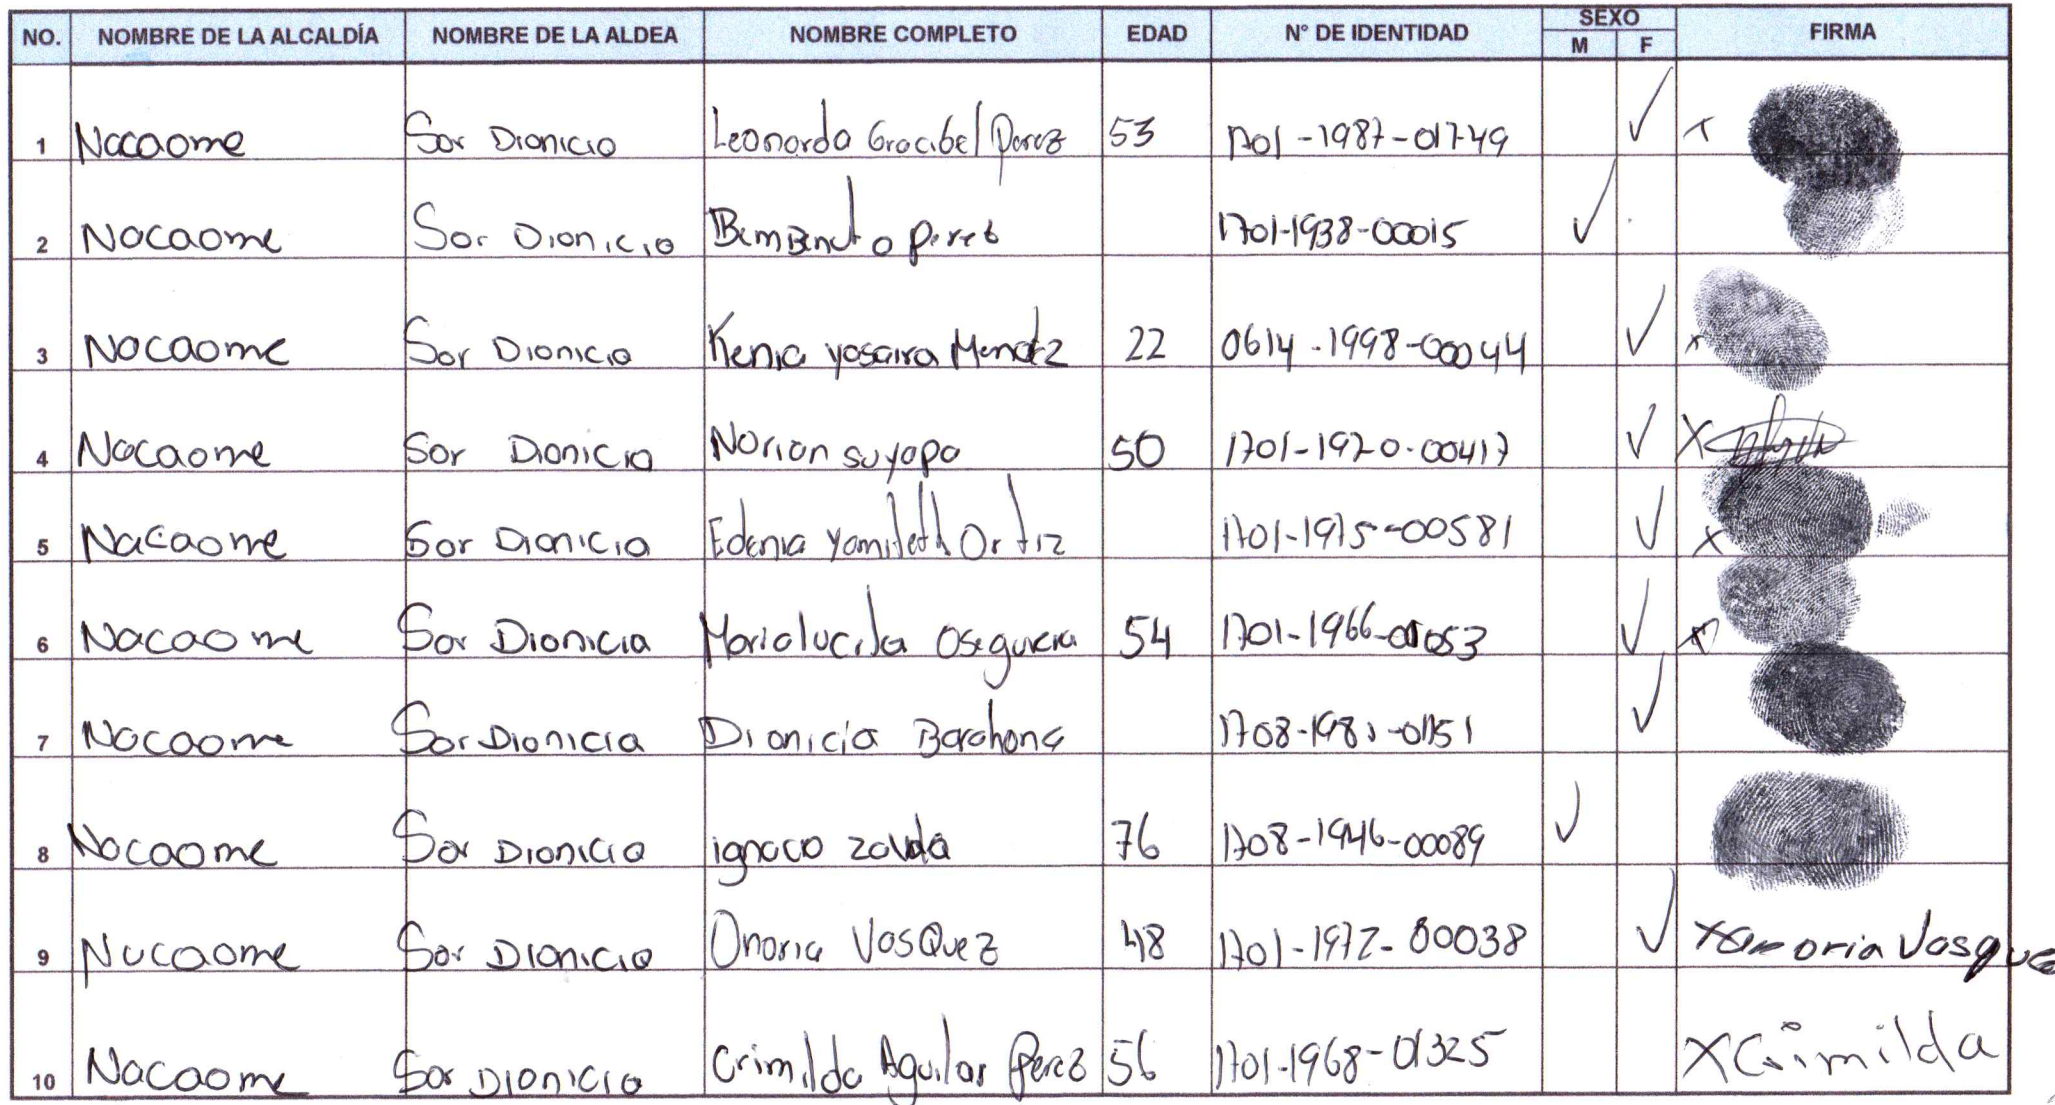 NO. NOMBRE DE LA ALCALDÍA NOMBRE DE LA ALDEA NOMBRE COMPLETO EDAD N° DE IDENTIDAD SEXO M F FIRMA
1 Nacaome Sor Dionicio Leonarda Gracibel Perez 53 1701-1987-01749 ✓ x
2 Nacaome Sor Dionicio Perez 1701-1938-00015 ✓
3 Nacaome Sor Dionicio Kenia yosaira Mendez 22 0614-1998-00044 ✓ x
4 Nacaome Sor Dionicio Norian suyapa 50 1701-1970-00417 ✓ X
5 Nacaome Sor Dionicia Edenia Yamileth Ortiz 1701-1975-00581 ✓ x
6 Nacaome Sor Dionicia Maria lucila Oseguera 54 ✓ x
7 Nacaome Sor Dionicia Dionicia Barahona ✓
8 Nacaome Sor Dionicio ignacio zavala 76 1708-1946-00089 ✓
9 Nacaome Sor Dionicio Onoria VasQuez 48 1701-1972-00038 ✓ X Vasque
10 Nacaome Sor Dionicio Crimilda Aguilar Perez 56 1701-1968-01325 X Crimilda